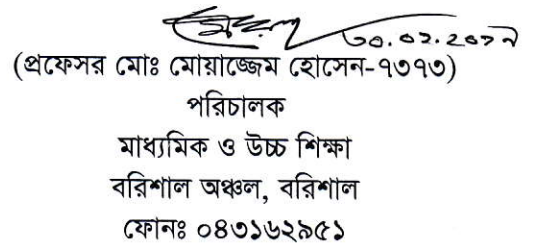 ৩০.০১.২০১৭
(প্রফেসর মোঃ মোয়াজ্জেম হোসেন-৭৩৭৩)
পরিচালক
মাধ্যমিক ও উচ্চ শিক্ষা
বরিশাল অঞ্চল, বরিশাল
ফোনঃ ০৪৩১৬২৯৫১